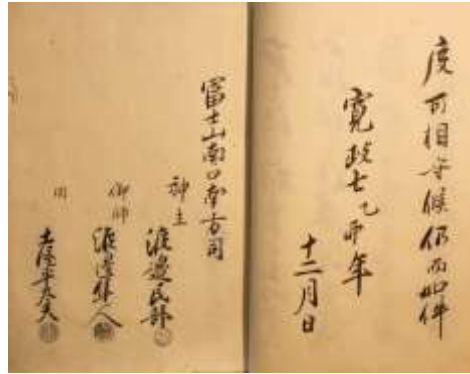 度可相守候仍而如件
寛政七乙卯年
十二月日
富士山南口
神主 渡邉民部
御師 渡邉隼人
同